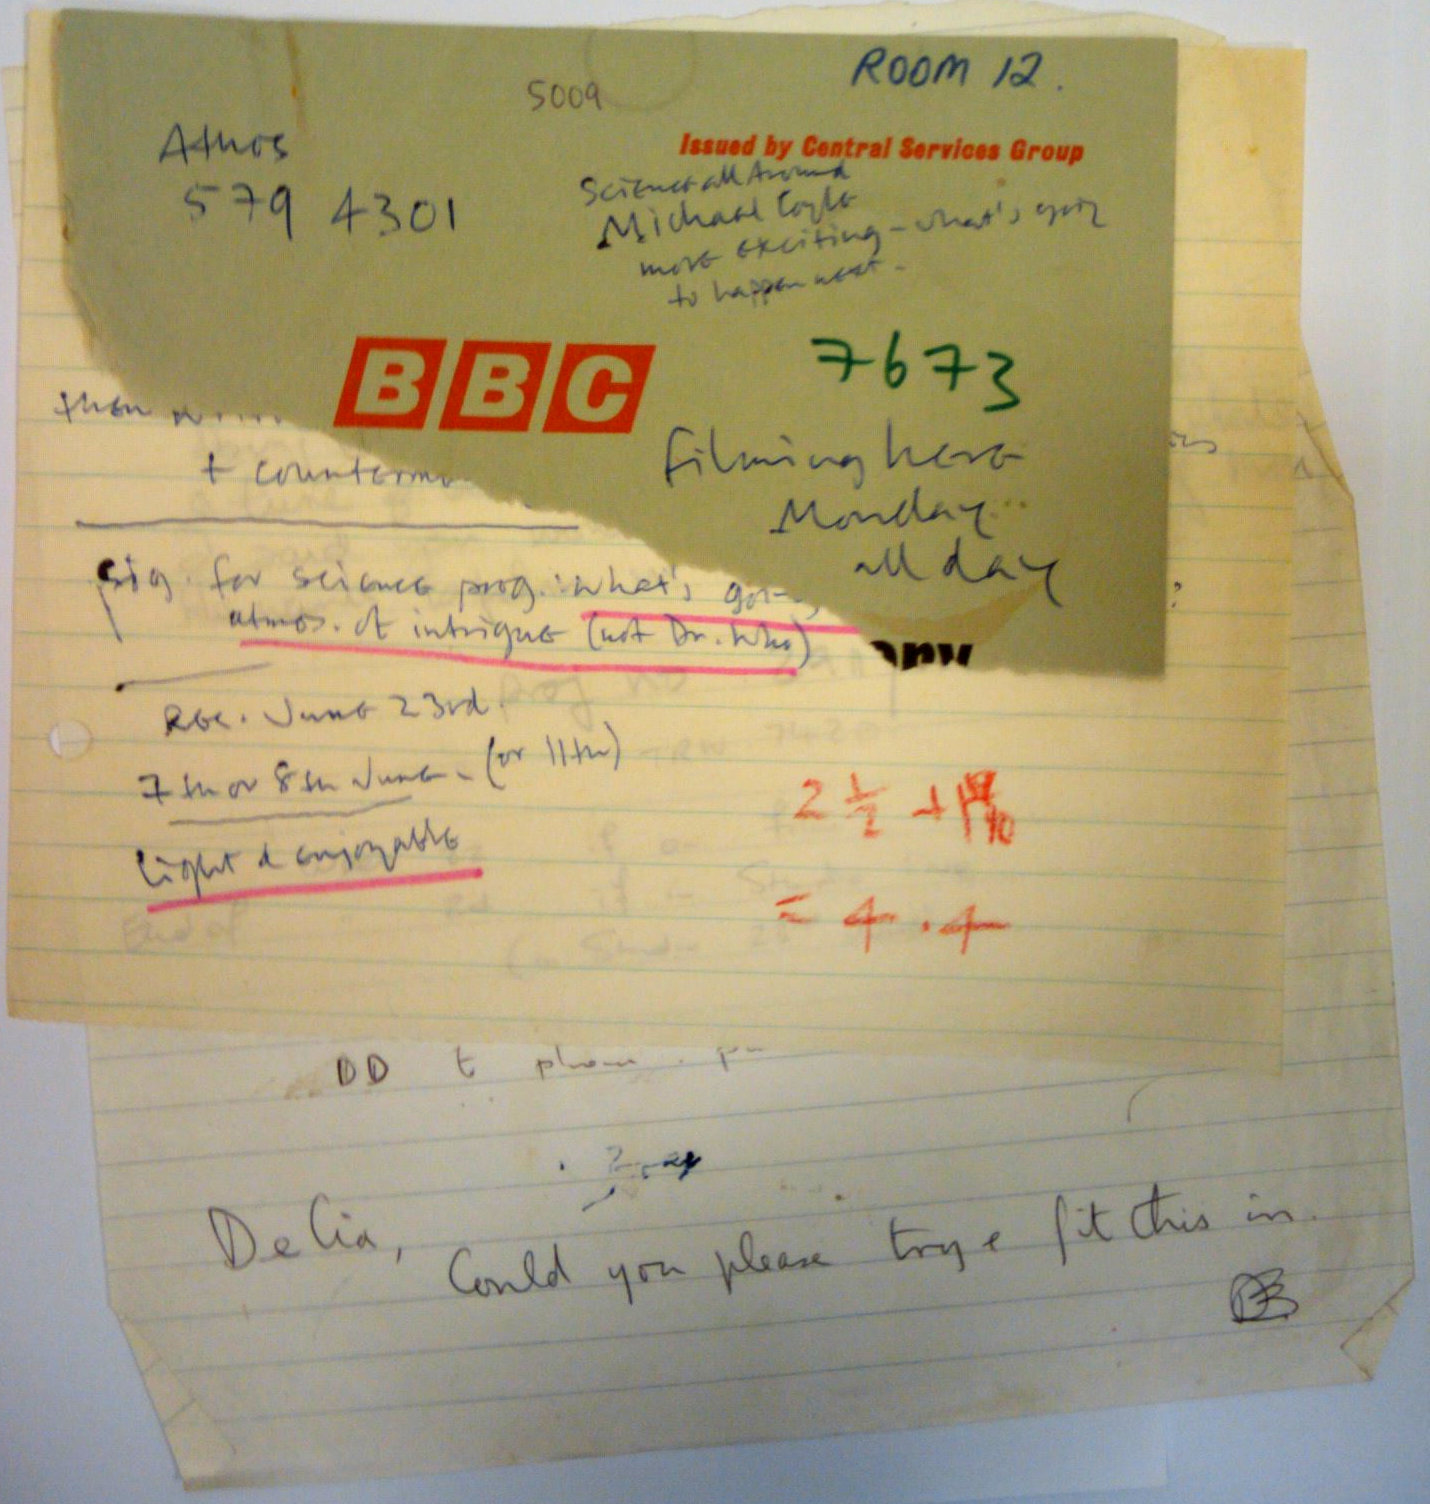 ROOM 12.
5009
Athos
579 4301
Issued by Central Services Group
Science all Around
Michael Coyle
more exciting - what's going
to happen next -
BBC
7673
filming here
Monday
all day
then
+ counterme
sig. for science prog. : what's going
?
atmos. of intrigue (not Dr. Who)
Rec. June 23rd
7th or 8th June - (or 11th)
light & enjoyable
2 1/2 +
= 4.4
DD t phone
Delia,
Could you please try & fit this in.